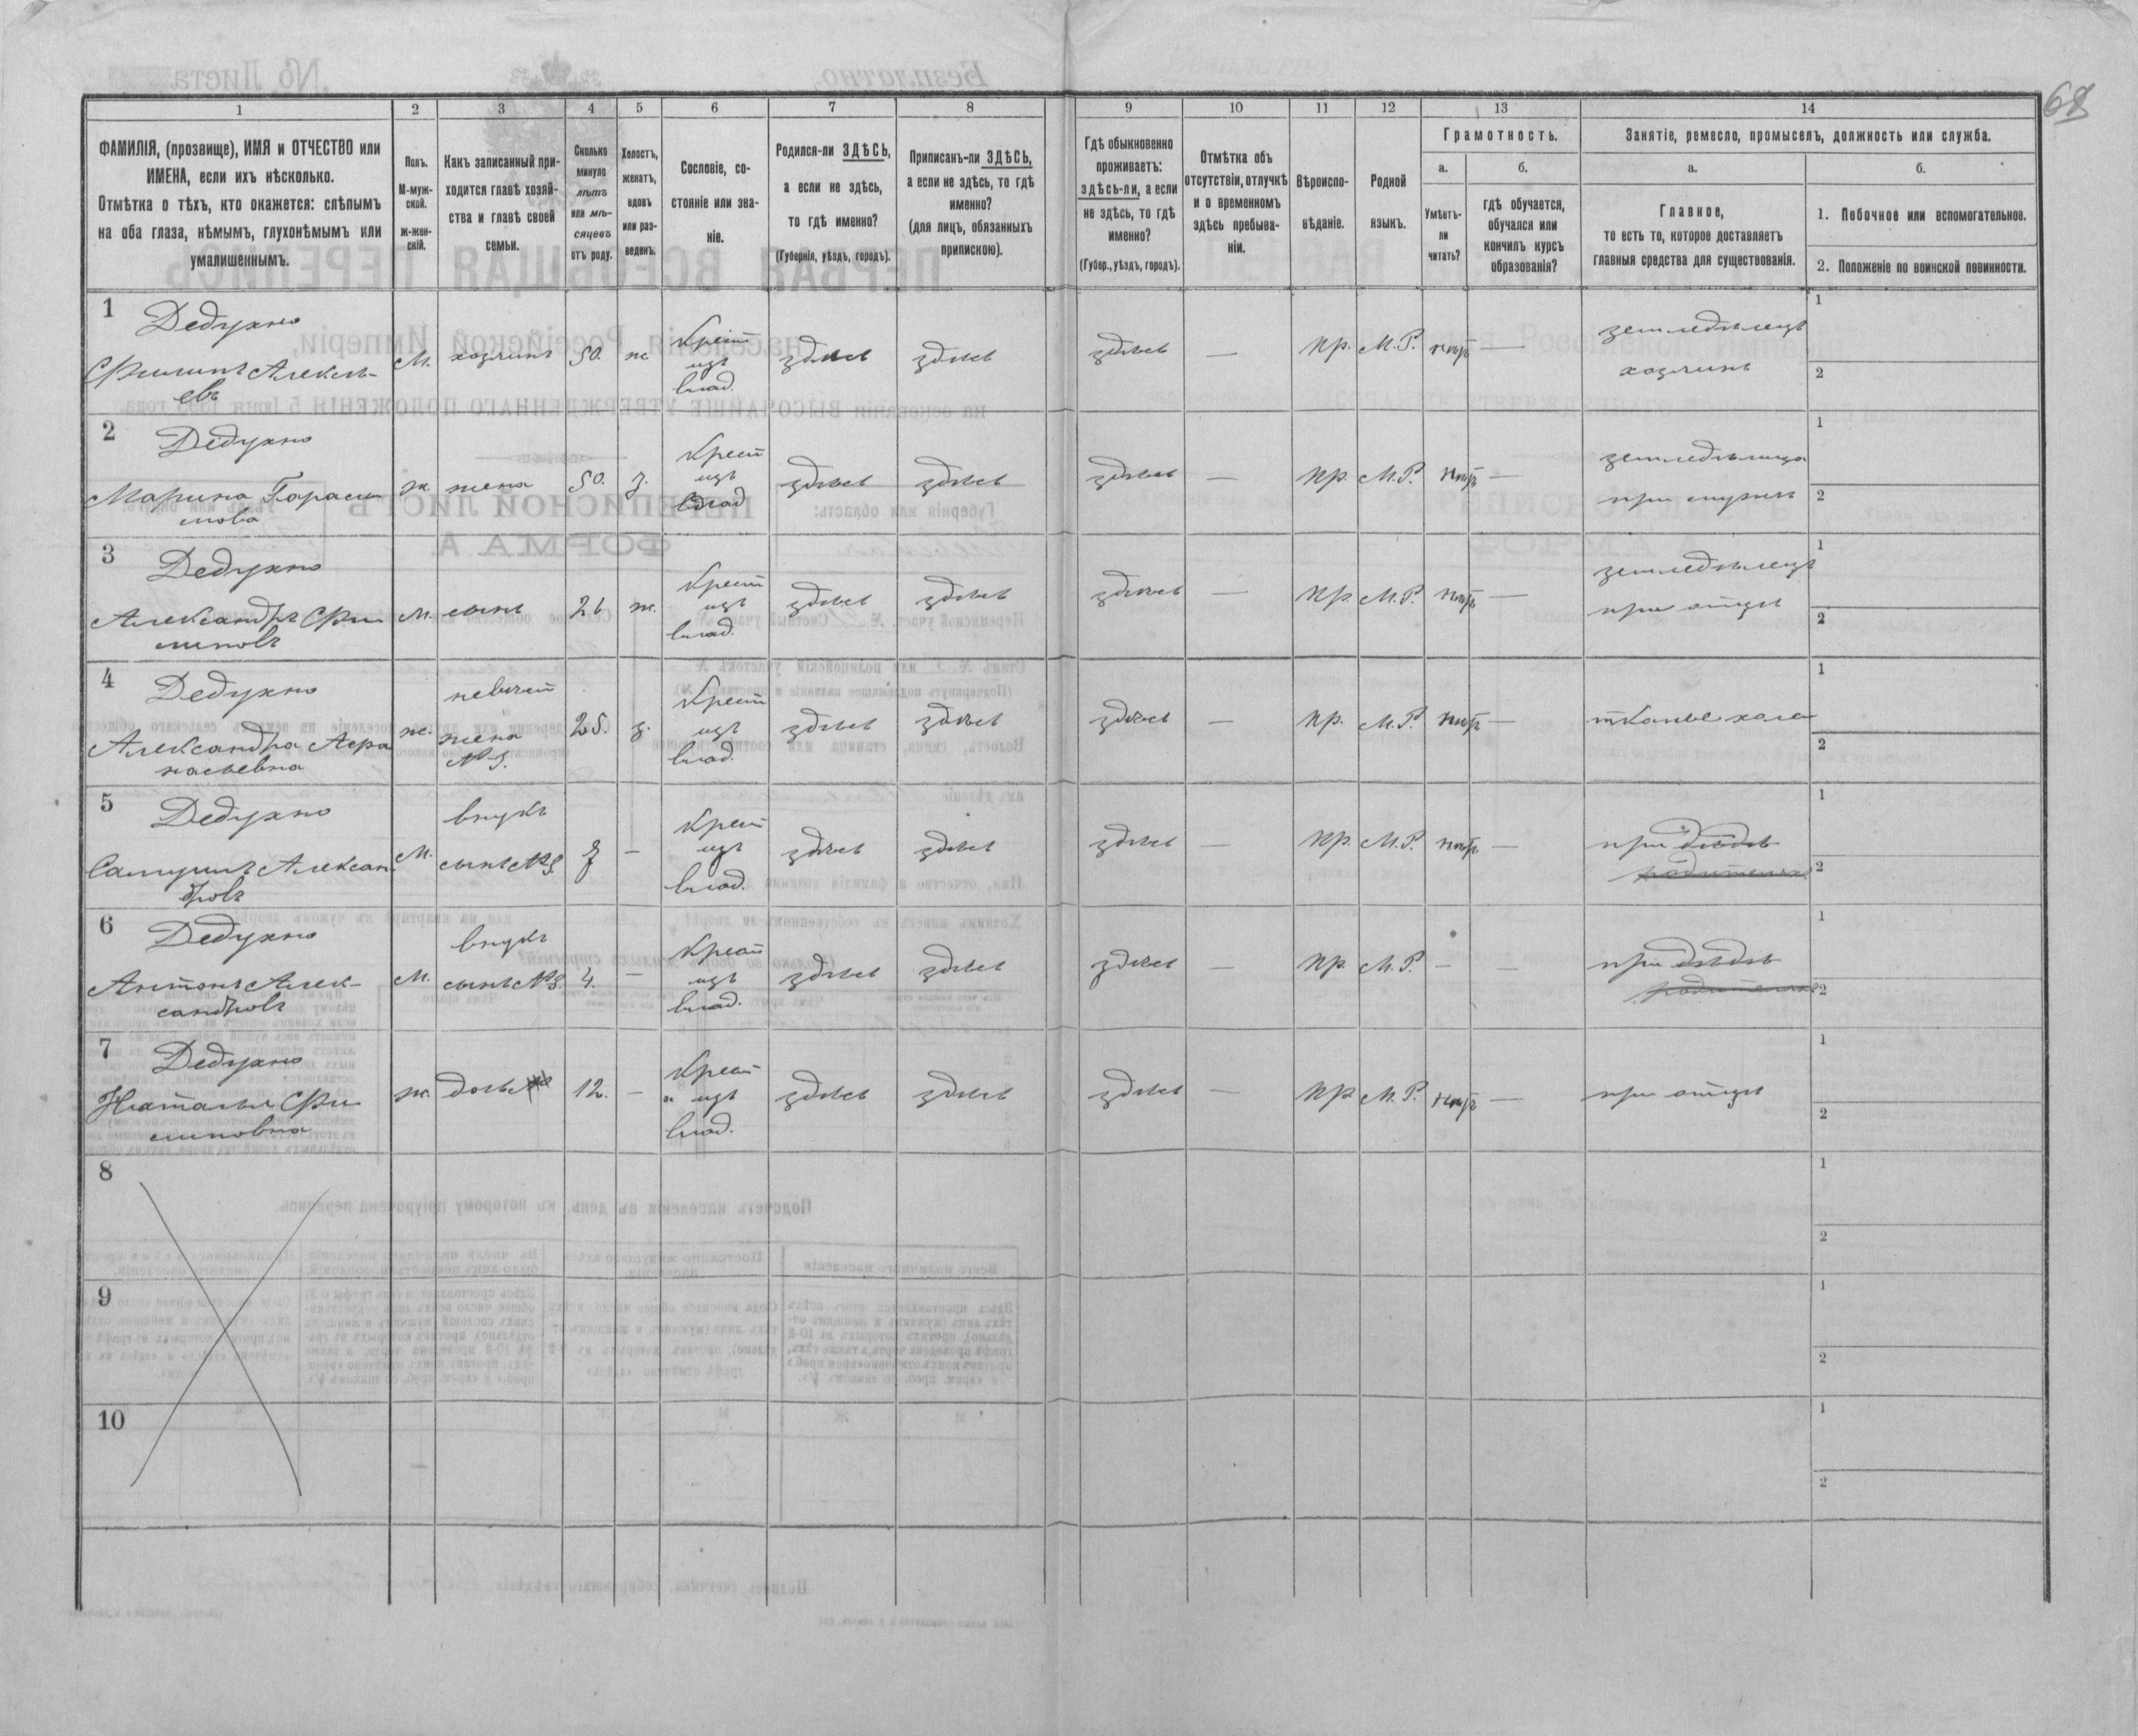 68
1 2 3 4 5 6 7 8 9 10 11 12 13 14
ФАМИЛІЯ, (прозвище), ИМЯ и ОТЧЕСТВО или
ИМЕНА, если ихъ нѣсколько.
Отмѣтка о тѣхъ, кто окажется: слѣпымъ
на оба глаза, нѣмымъ, глухонѣмымъ или
умалишеннымъ.
Полъ.
М-муж-
ской.
Ж-жен-
скій.
Какъ записанный при-
ходится главѣ хозяй-
ства и главѣ своей
семьи.
Сколько
минуло
лѣтъ
или мѣ-
сяцевъ
отъ роду.
Холостъ,
женатъ,
вдовъ
или раз-
веденъ.
Сословіе, со-
стояніе или зва-
ніе.
Родился-ли ЗДѢСЬ,
а если не здѣсь,
то гдѣ именно?
(Губернія, уѣздъ, городъ).
Приписанъ-ли ЗДѢСЬ,
а если не здѣсь, то гдѣ
именно?
(для лицъ, обязанныхъ
припискою).
Гдѣ обыкновенно
проживаетъ:
здѣсь-ли, а если
не здѣсь, то гдѣ
именно?
(Губер., уѣздъ, городъ).
Отмѣтка объ
отсутствіи, отлучкѣ
и о временномъ
здѣсь пребыва-
ніи.
Вѣроиспо-
вѣданіе.
Родной
языкъ.
Грамотность.
а.
Умѣетъ-
ли
читать?
б.
гдѣ обучается,
обучался или
кончилъ курсъ
образованія?
Занятіе, ремесло, промыселъ, должность или служба.
а.
Главное,
то есть то, которое доставляетъ
главныя средства для существованія.
б.
1. Побочное или вспомогательное.
2. Положеніе по воинской повинности.
1 Дедухно
Филипъ Алексѣ-
евъ
М. хозяинъ 50. ж.
Крест
изъ
влад.
здѣсь здѣсь здѣсь — пр. М.Р. нѣтъ —
земледѣлецъ
хозяинъ
1
2
2 Дедухно
Марина Гараси
мова
ж. жена 50. з.
Крест
изъ
влад
здѣсь здѣсь здѣсь — пр. М.Р. нѣтъ —
земледѣлица
при мужѣ
1
2
3 Дедухно
Александръ Фи
липовъ
м. сынъ 26 ж.
Крест
изъ
влад.
здѣсь здѣсь здѣсь — пр. М.Р. нѣтъ —
земледѣлецъ
при отцѣ
1
2
4 Дедухно
Александра Афа
насьевна
ж.
невѣст
жена
№ 3.
25. з.
Крест
изъ
влад.
здѣсь здѣсь здѣсь — пр. М.Р. нѣтъ —
тканье
1
2
5 Дедухно
Самуилъ Алексан
дровъ
М.
внукъ
сынъ №3
7 —
Крест
изъ
влад.
здѣсь здѣсь здѣсь — пр. М.Р. нѣтъ —
при дѣдѣ
родителяхъ
1
2
6 Дедухно
Антонъ Алек-
сандровъ
М.
внукъ
сынъ №3.
4. —
Крест
изъ
влад.
здѣсь здѣсь здѣсь — пр. М.Р. — —
при дѣдѣ
родителяхъ
1
2
7 Дедухно
Наталья Фи
липовна
ж. дочь 12. —
Крест
изъ
влад.
здѣсь здѣсь здѣсь — пр. М.Р. нѣтъ —
при отцѣ
1
2
8
1
2
9
1
2
10
1
2